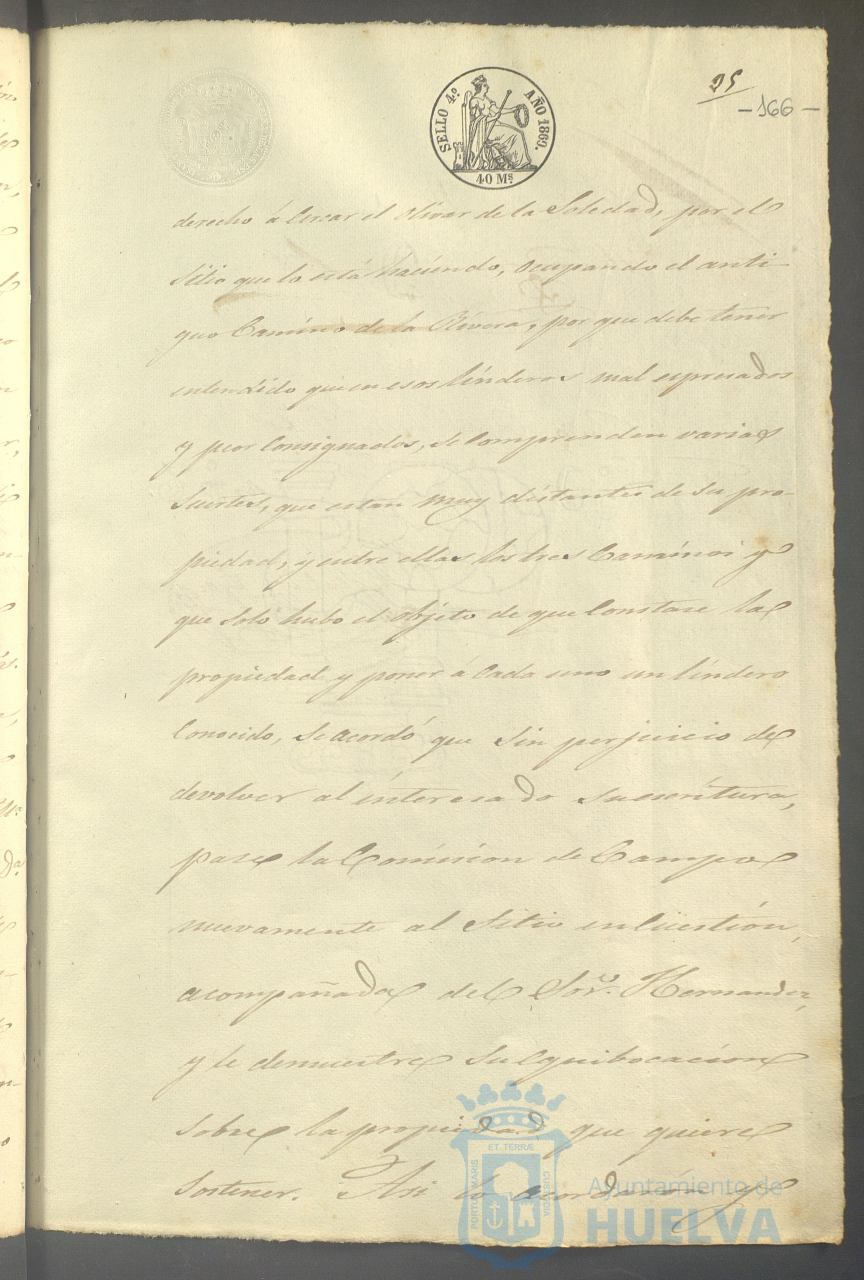 SELLO 4.º AÑO 1860.
40 Mˢ.
25
-166-
derecho á Cercar el Olivar de la Soledad, por el
Sitio que lo está haciendo, ocupando el anti-
guo Camino de la Rivera, por que debe tener
entendido que en esos linderos mal espresados
y peor Consignados, se Comprenden varias
Suertes, que estan muy distantes de su pro-
piedad, y entre ellas los tres Caminos y
que solo hubo el objeto de que Constase la
propiedad y poner á Cada uno un lindero
Conocido, se acordó que sin perjuicio de
devolver al interesado su escritura,
pase la Comision de Campo
nuevamente al Sitio en Cüestion,
acompañada del Sor. Hernandez,
y le demuestre su equibocacion
sobre la propiedad que quiere
Sostener. Asi lo acordaron y
PORTUS MARIS ET TERRÆ CUSTODIA
Ayuntamiento de
HUELVA